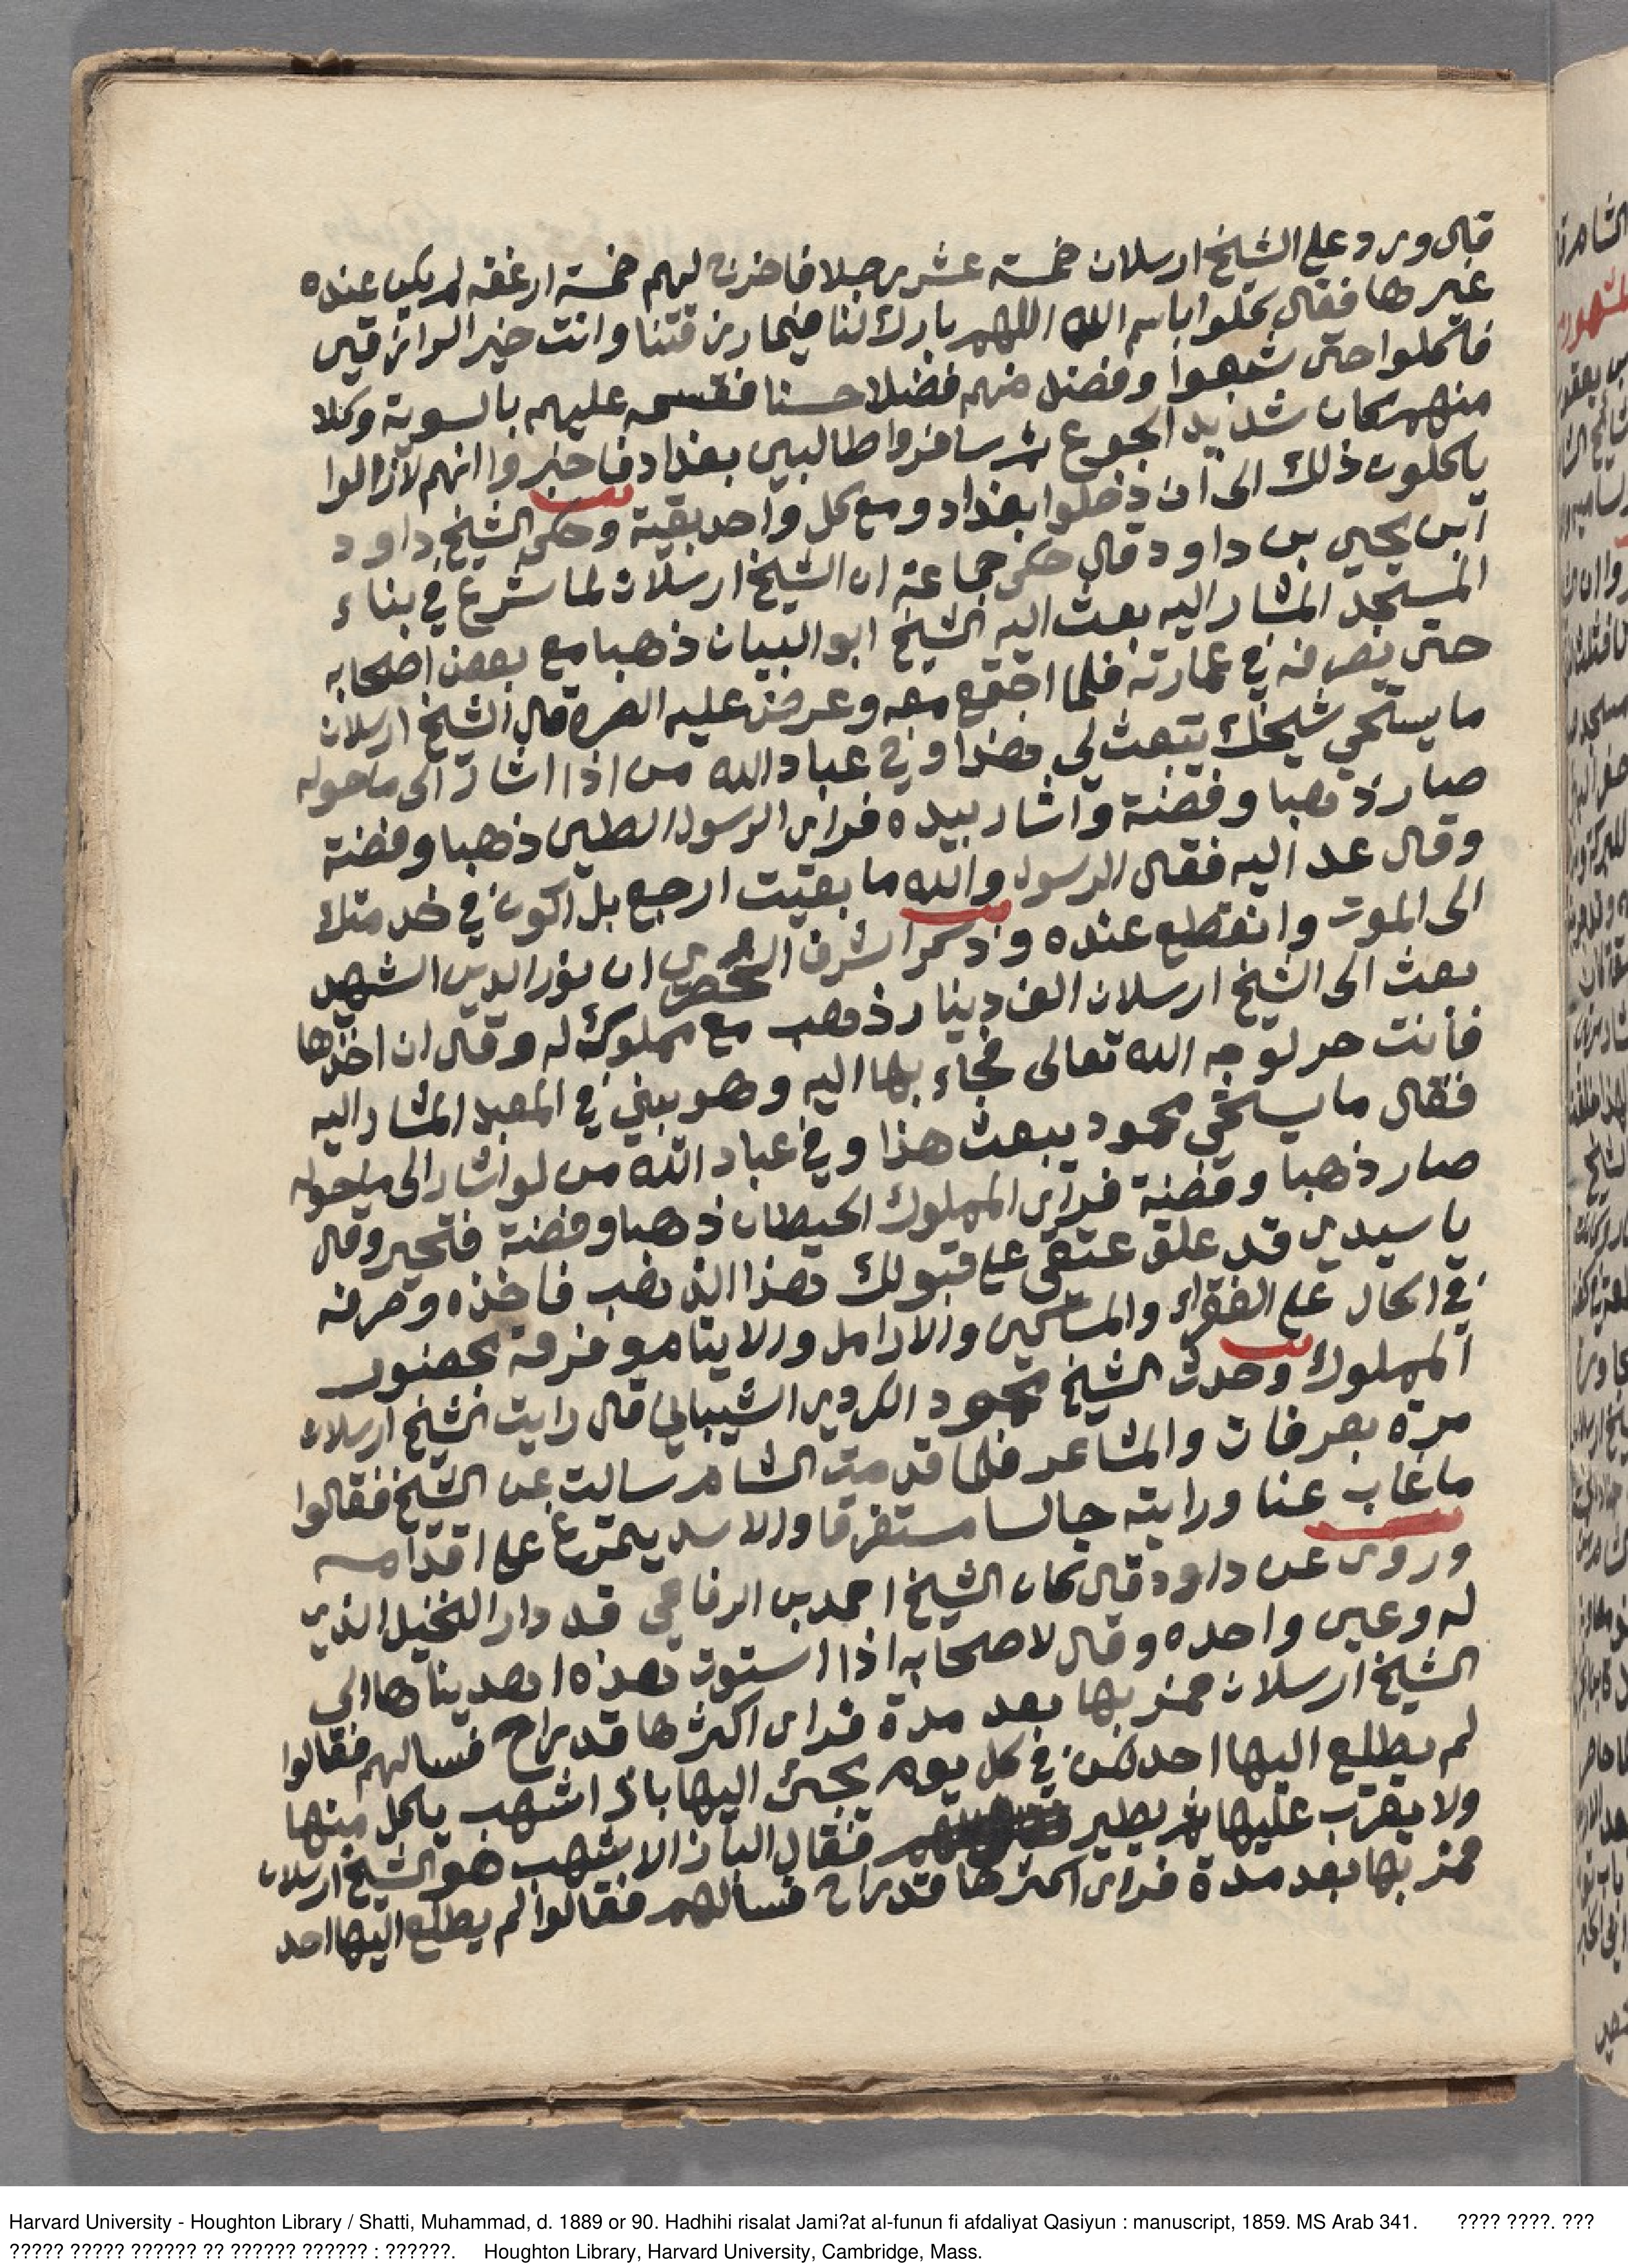 قال وورد على الشيخ ارسلان خمسة عشر رجلا فاخرج لهم خمسة ارغفه لم يكن عنده
غيرها فقال كلوا باسم الله اللهم بارك لنا فيما رزقتنا وانت خير الرازقين
فاكلوا حتى شبعوا وفضل منهم فضلا حسنا فقسمه عليهم بالسوية وكلا
منهم كان شديد الجوع ثم سافروا طالبين بغداد فاخبروا انهم لازالوا
ياكلون ذلك الى ان دخلوا بغداد ومع كل واحد بقية وحكى الشيخ داود
ابن يحيى بن داود قال حكى جماعة ان الشيخ ارسلان لما شرع في بناء
المسجد المشار اليه بعث اليه الشيخ ابو البيان ذهبا مع بعض اصحابه
حتى يصرفه في عمارته فلما اجتمع معه وعرض عليه الصرة قال الشيخ ارسلان
ما يستحي شيخك يبعث لي هذا وفي عباد الله من اذا اشار الى ما حوله
صار ذهبا وفضة واشار بيده فراى الرسول الطين ذهبا وفضة
وقال عد اليه فقال الرسول والله ما بقيت ارجع بل اكون في خدمتك
الى الموت وانقطع عنده وذكر الشرف ان نور الدين الشهيد
بعث الى الشيخ ارسلان الف دينار ذهب مع مملوك له وقال ان اخذها
فانت حر لوجه الله تعالى فجاء بها اليه وهو يبني في المعبد المشار اليه
فقال ما يستحي محمود يبعث هذا وفي عباد الله من لو اشار الى ما حوله
صار ذهبا وفضة فراى المملوك الحيطان ذهبا وفضة فتحير وقال
يا سيدي قد علق عتقي على قبولك هذا الذهب فاخذه وصرفه
في الحال على الفقراء والمساكين والارامل والايتام وفرقه بحضور
المملوك وحدث الشيخ محمود الكردي الشيباني قال رايت الشيخ ارسلان
مرة بعرفات والمشاعر فلما قدمت الشام سالت عن الشيخ فقالوا
ما غاب عنا ورايته جالسا مستغرقا والاسد يتمرغ على اقدامه
وروى عن داود قال كان الشيخ احمد بن الرفاعي قد دار النخيل الذي
له وعين واحده وقال لاصحابه اذا استوت هذه اهديناها الى
الشيخ ارسلان فمر بها بعد مدة فراى اكثرها قد راح فسالهم فقالوا
لم يطلع اليها احد لكن في كل يوم يجئ اليها باز اشهب ياكل منها
ولا يقرب عليها ثم يطير فقال الباز الاشهب هو الشيخ ارسلان
فمر بها بعد مدة فراى اكثرها قد راح فسالهم فقالوا لم يطلع اليها احد
Harvard University - Houghton Library / Shatti, Muhammad, d. 1889 or 90. Hadhihi risalat Jami?at al-funun fi afdaliyat Qasiyun : manuscript, 1859. MS Arab 341. ???? ????. ???
????? ????? ?????? ?? ?????? ?????? : ??????. Houghton Library, Harvard University, Cambridge, Mass.